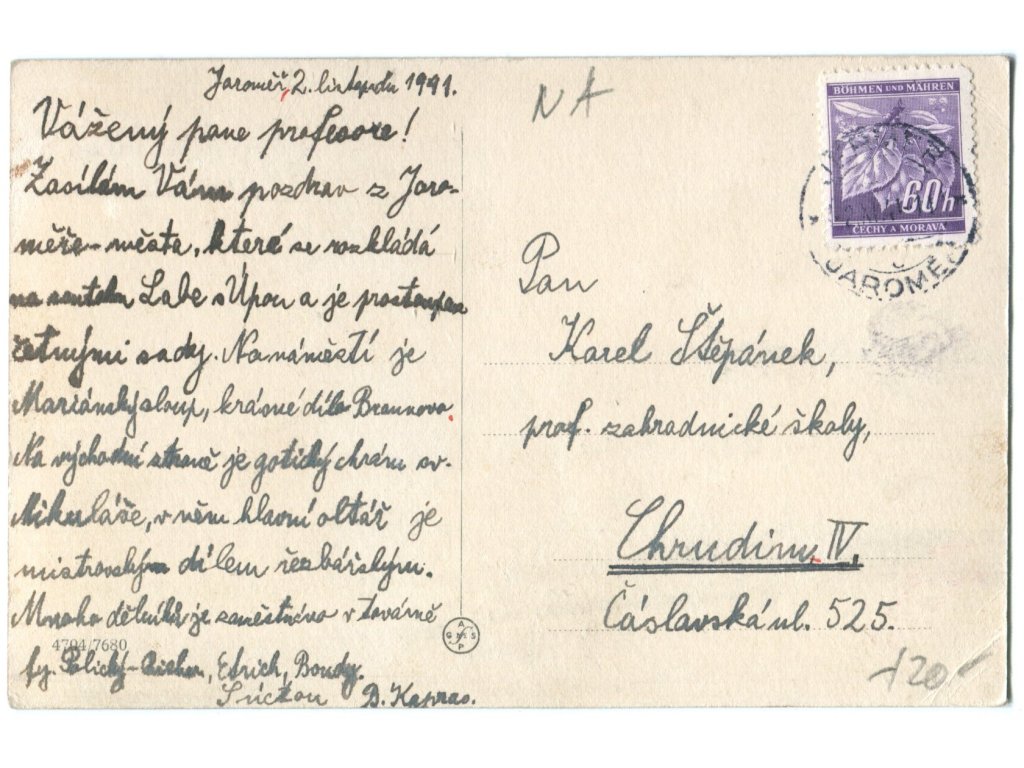 Jaroměř, 2. listopadu 1941.
Vážený pane profesore!
Zasílám Vám pozdrav z Jaro-
měře - města, které se rozkládá
na soutoku Labe s Úpou a je prostoupeno
četnými sady. Na náměstí je
Mariánský sloup, krásné dílo Braunovo.
Na východní straně je gotický chrám sv.
Mikuláše, v něm hlavní oltář je
mistrovským dílem řezbářským.
Mnoho dělníků je zaměstnáno v továrně
4704/7680
fy. Etrich, Bondy.
S úctou B.
N A
BÖHMEN UND MÄHREN
60h
ČECHY A MORAVA
JAROMĚŘ
Pan
Karel Štěpánek,
prof. zahradnické školy,
Chrudim, IV.
Čáslavská ul. 525.
120-